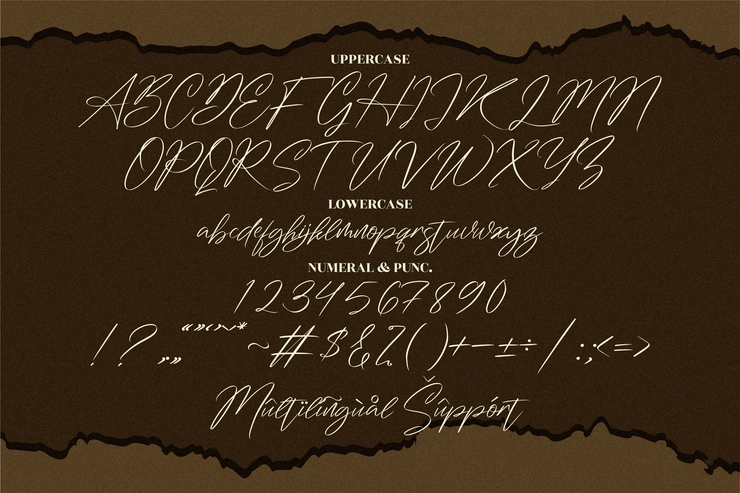 UPPERCASE
ABCDEFGHIJKLMN
OPQRSTUVWXYZ
LOWERCASE
abcdefghijklmnopqrstuvwxyz
NUMERAL & PUNC.
1234567890
!?.,„“”‘’~*~#$&%()+−±÷/:;<=>
Mûltïlïñgùål Šûppórt